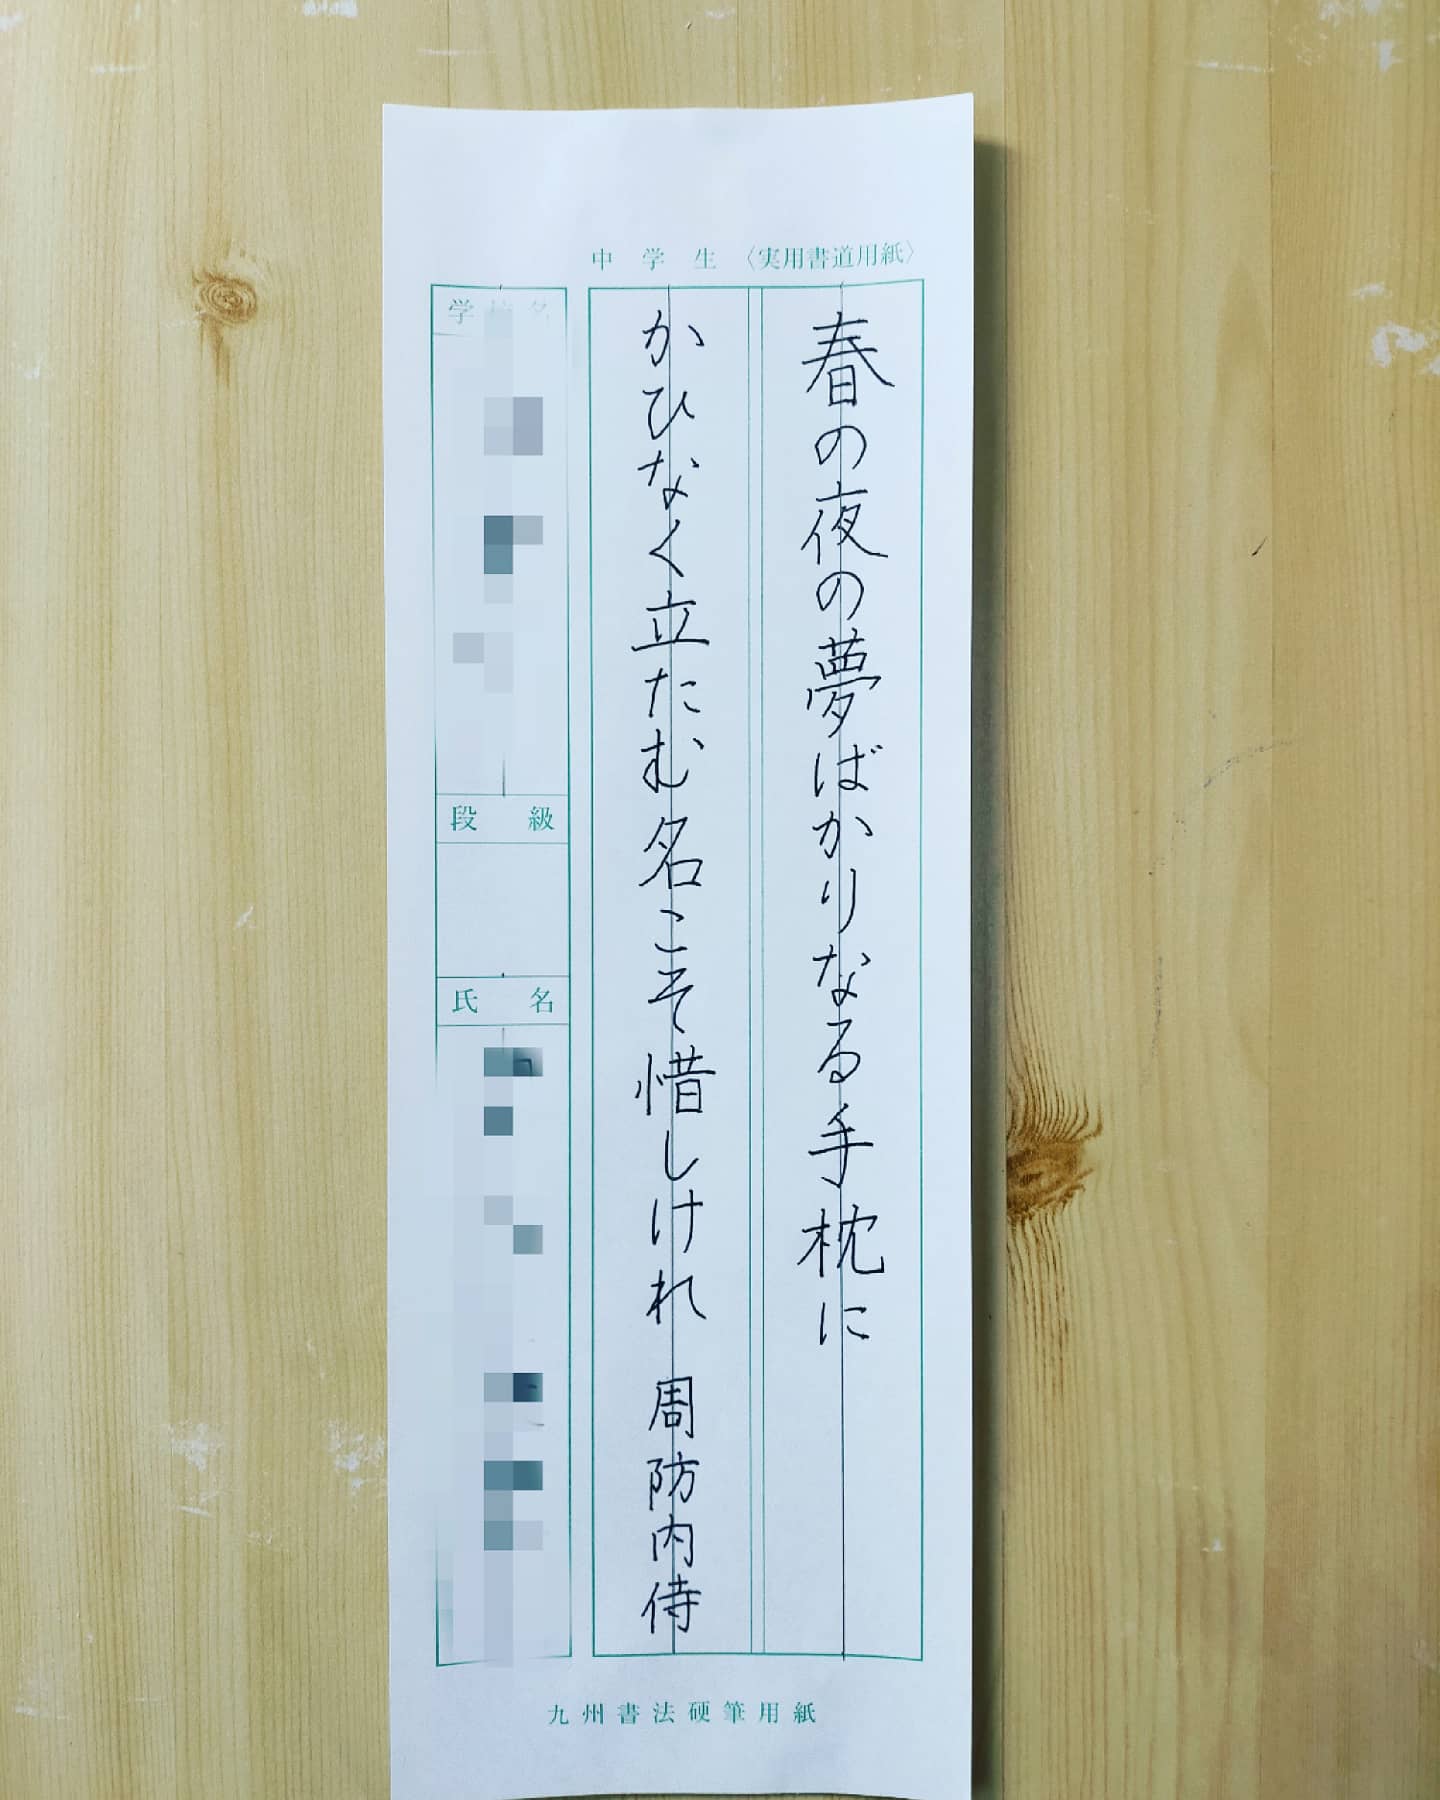 中学生〈実用書道用紙〉
春の夜の夢ばかりなる手枕に
かひなく立たむ名こそ惜しけれ 周防内侍
学 名
段級
氏名
九州書法硬筆用紙